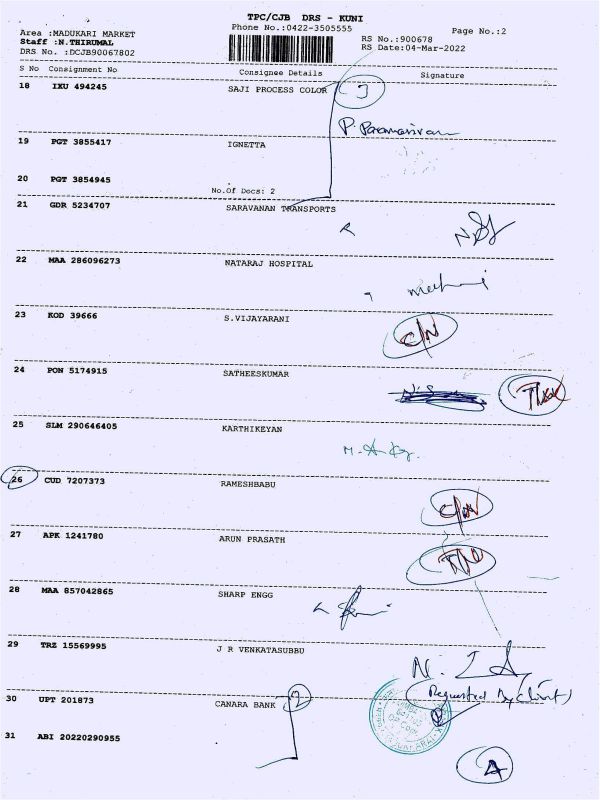 TPC/CJB DRS - KUNI
Phone No.:0422-3505555
Page No.:2
Area :MADUKARI MARKET
Staff :N.THIRUMAL
DRS No. :DCJB90067802
RS No.:900678
RS Date:04-Mar-2022
S No Consignment No Consignee Details Signature
18 IXU 494245 SAJI PROCESS COLOR 3
P. Paramasivam
19 PGT 3855417 IGNETTA
20 PGT 3854945
No.Of Docs: 2
21 GDR 5234707 SARAVANAN TRANSPORTS
22 MAA 286096273 NATARAJ HOSPITAL
23 KOD 39666 S.VIJAYARANI
C/N
24 PON 5174915 SATHEESKUMAR
25 SLM 290646405 KARTHIKEYAN
26 CUD 7207373 RAMESHBABU
C/N
27 APK 1241780 ARUN PRASATH
28 MAA 857042865 SHARP ENGG
29 TRZ 15569995 J R VENKATASUBBU
(Requested by Client)
30 UPT 201873 CANARA BANK 2
31 ABI 20220290955
A